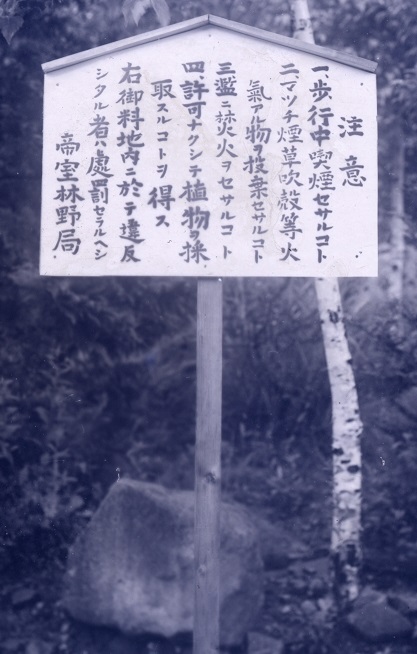 注意
一、歩行中喫煙セサルコト
二、マツチ煙草吹殻等火
氣アル物ヲ投棄セサルコト
三、濫ニ焚火ヲセサルコト
四、許可ナクシテ植物ヲ採
取スルコトヲ得ス
右御料地内ニ於テ違反
シタル者ハ處罰セラルヘシ
帝室林野局